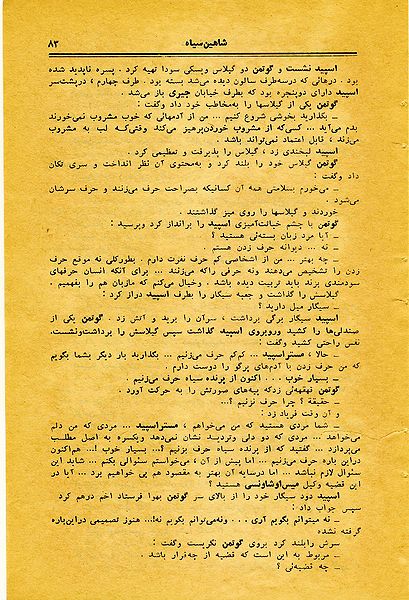 شاهین سیاه
۸۳
اسپید نشست و گوتمن دو گیلاس ویسکی سودا تهیه کرد . پسره ناپدید شده
بود . درهائی که درسه‌طرف سالون دیده می‌شد بسته بود . طرف چهارم ، درپشت‌سر
اسپید دارای دوپنجره بود که بطرف خیابان جیری باز می‌شد .
گوتمن یکی از گیلاسها را به‌مخاطب خود داد وگفت :
ـ بگذارید بخوشی شروع کنیم ... من از آدمهائی که خوب مشروب نمی‌خورند
بدم می‌آید ... کسی‌که از مشروب خوردن‌پرهیز می‌کند وقتی‌که لب به مشروب
می‌زند ، قابل اعتماد نمی‌تواند باشد .
اسپید لبخندی زد ، گیلاس را پذیرفت و تعظیمی کرد .
گوتمن گیلاس خود را بلند کرد و به‌محتوی آن نظر انداخت و سری تکان
داد وگفت :
ـ می‌خورم بسلامتی همه آن کسانیکه بصراحت حرف می‌زنند و حرف سرشان
می‌شود .
خوردند و گیلاسها را روی میز گذاشتند .
گوتمن با چشم خیانت‌آمیزی اسپید را برانداز کرد وپرسید :
ـ آیا مرد زبان بسته‌ئی هستید ؟
ـ نه ... دیوانه حرف زدن هستم .
ـ چه بهتر ... من از اشخاصی کم حرف نفرت دارم . بطورکلی نه موقع حرف
زدن را تشخیص می‌دهند ونه حرفی راکه می‌زنند ... برای آنکه انسان حرفهای
سودمندی بزند باید تربیت دیده باشد . وخیال می‌کنم که مازبان هم را بفهمیم .
گیلاسش را گذاشت و جعبه سیگار را بطرف اسپید دراز کرد :
ـ سیگار میل دارید ؟
اسپید سیگار برگی برداشت ، سرآن را برید و آتش زد . گوتمن یکی از
صندلی‌ها را کشید وروبروی اسپید گذاشت سپس گیلاسش را برداشت‌ونشست.
نفس راحتی کشید وگفت :
ـ حالا ، مستراسپید ... کم‌کم حرف می‌زنیم ... بگذارید بار دیگر بشما بگویم
که من حرف زدن با آدم‌های پرگو را دوست دارم .
ـ بسیار خوب ... اکنون از پرنده سیاه حرف می‌زنیم .
گوتمن قهقهه‌ئی زدکه پیه‌های صورتش را به حرکت آورد .
ـ حقیقة ؟ چرا حرف نزنیم ؟...
و آن وقت فریاد زد :
ـ شما مردی هستید که من می‌خواهم ، مستراسپید ... مردی که من دلم
می‌خواهد ... مردی که دو دلی وتردید نشان نمی‌دهد ویکسره به اصل مطلب
می‌پردازد ... گفتید که از پرنده سیاه حرف بزنیم ؟... بسیار خوب !... هم‌اکنون
دراین باره حرف می‌زنیم ... اما پیش از آن ، می‌خواستم سئوالی بکنم ... شاید این
سئوال لازم نباشد ... اما درسایه آن بهتر به مقصود هم پی خواهیم برد ... آیا در
این قضیه وکیل میس‌اوشاونسی هستید ؟
اسپید دود سیگار خود را از بالای سر گوتمن بهوا فرستاد اخم درهم کرد
سپس جواب داد :
ـ نه میتوانم بگویم آری ... ونه‌می‌توانم بگویم نه!... هنوز تصمیمی دراین‌باره
گرفته نشده
سرش رابلند کرد بروی گوتمن نگریست وگفت :
ـ مربوط به این است که قضیه از چه‌قرار باشد .
ـ چه قضیه‌ئی ؟